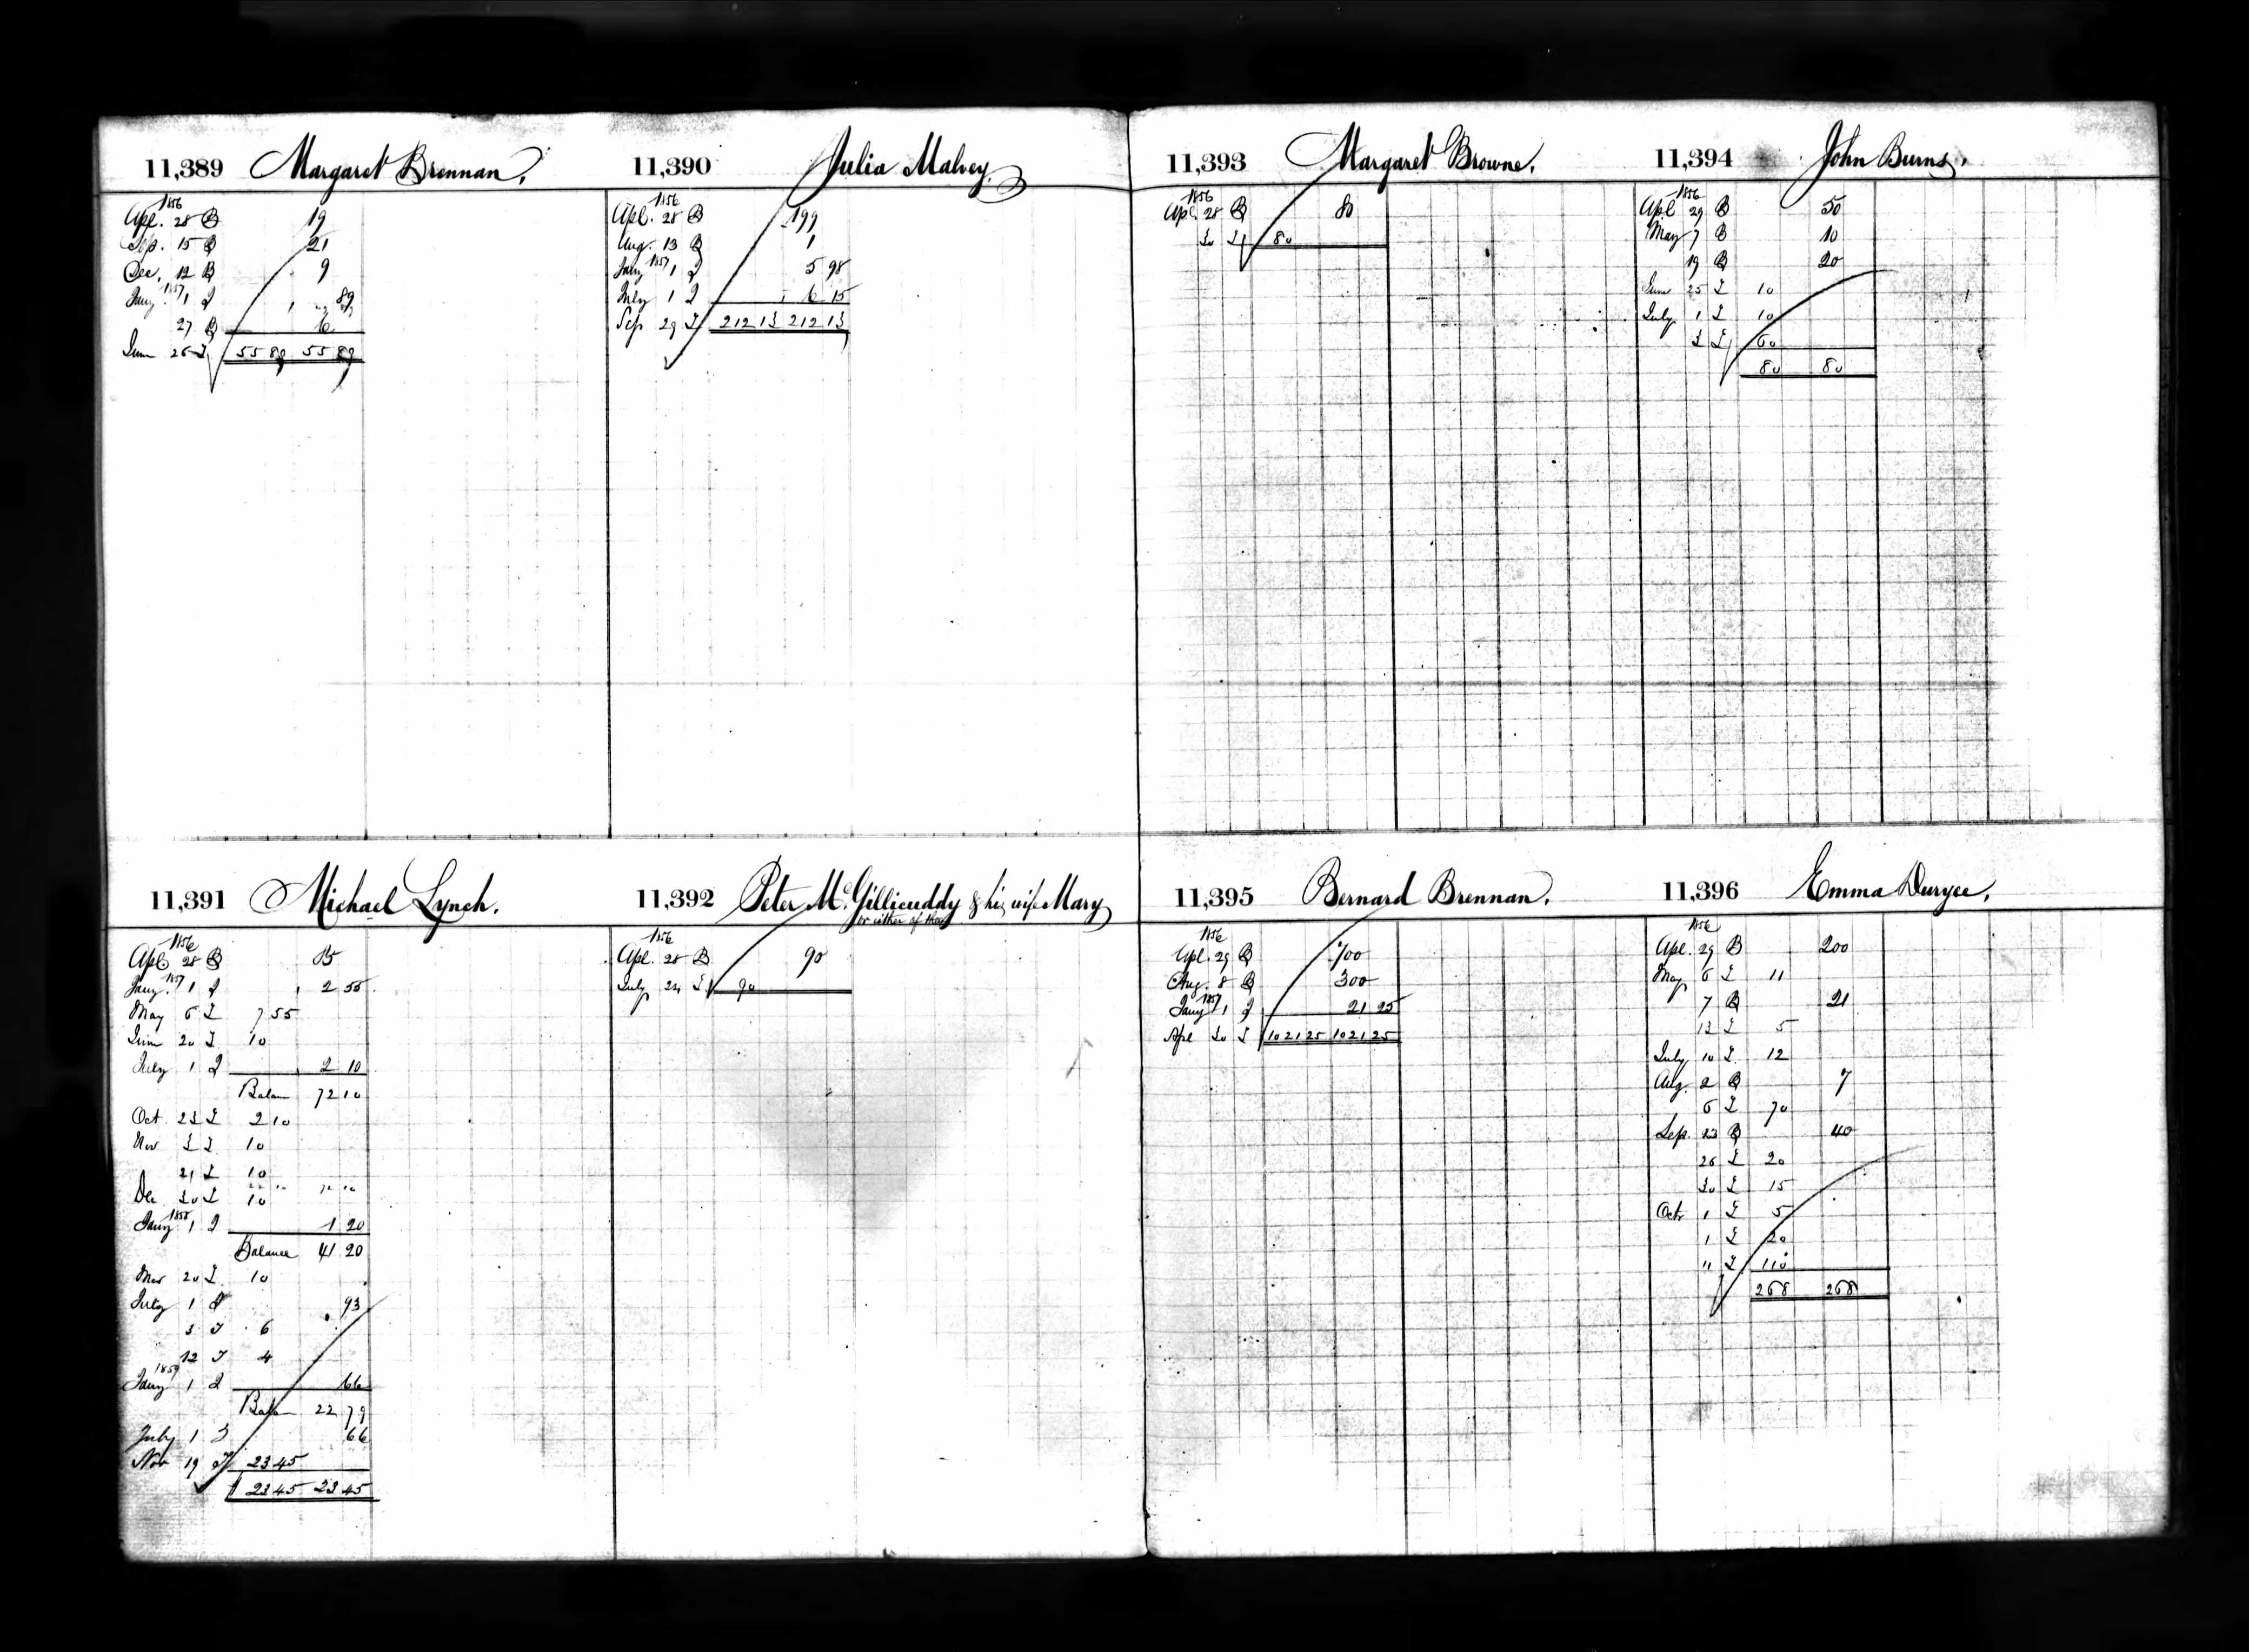 11,389 Margaret Brennan.
1856
Apl. 28 B 19
Sep. 15 B 21
Dec. 12 B 9
1857
Jany. 1 I 89
27 B 6
June 26 T 55 89 55 89
11,390 Julia Malvey
1856
Apl. 28 B 199
Aug. 13 B 1
1857
Jany 1 I 5 98
July 1 I 6 15
Sep 29 T 212 13 212 13
11,391 Michael Lynch.
1856
Apl. 28 B
1857
Jany. 1 I 2 55
May 6 T 7 55
June 20 T 10
July 1 I 2 10
Balan 72 10
Oct 23 T 2 10
Nov 3 T 10
21 T 10
Dec 30 T 10
1858
Jany 1 I 1 20
Balance 41 20
Mar 20 T 10
July 1 I 93
3 T 6
12 T 4
1859
Jany 1 I 66
Balan 22 79
July 1 I 66
Nov 19 T 23 45
23 45 23 45
11,392 Peter McGillicuddy & his wife Mary
or either of them
1856
Apl. 28 B 90
July 24 T 90
11,393 Margaret Browne.
1856
Apl. 28 B 80
30 T 80
11,394 John Burns.
1856
Apl 29 B 50
May 7 B 10
19 B 20
June 25 T 10
July 1 T 10
3 T 60
80 80
11,395 Bernard Brennan.
1856
Apl. 29 B 700
Aug. 8 B 300
1857
Jany 1 I 21 25
Apl 30 T 1021 25 1021 25
11,396 Emma Duryee.
1856
Apl. 29 B 200
May 6 T 11
7 B 21
13 T 5
July 10 T 12
Aug. 2 B 7
6 T 70
Sep. 23 B 40
26 T 20
30 T 15
Oct 1 T 5
1 T 20
" T 110
268 268